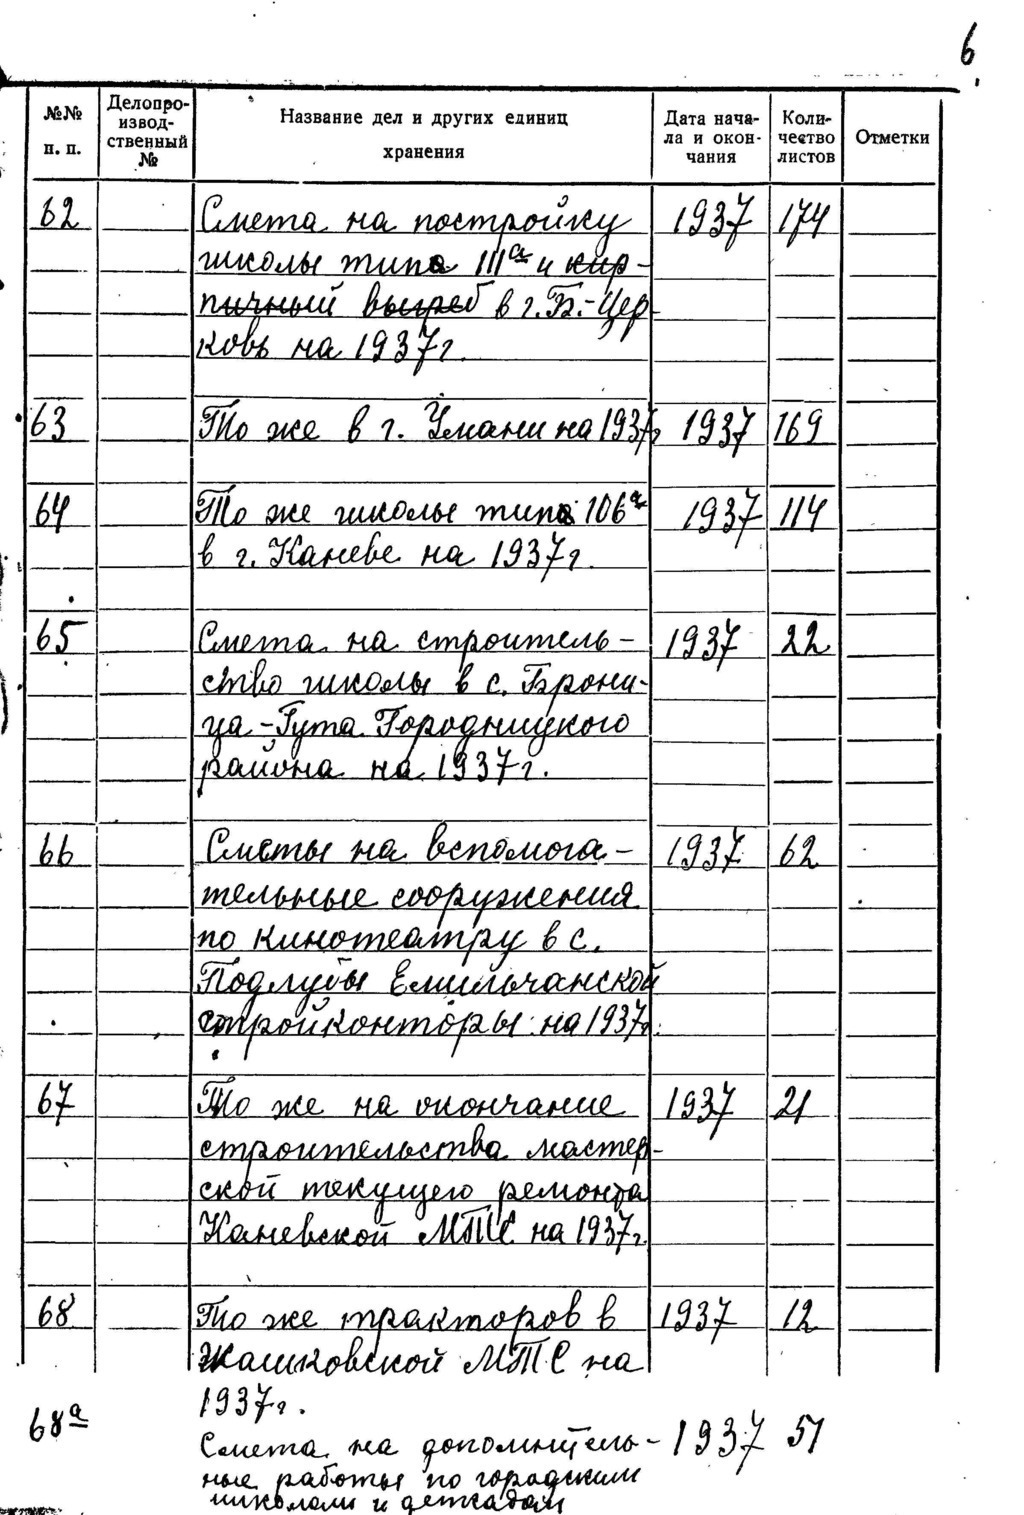 6
№№ п. п.
Делопро-
извод-
ственный
№
Название дел и других единиц
хранения
Дата нача-
ла и окон-
чания
Коли-
чество
листов
Отметки
62 Смета на постройку 1937 174
школы типа IIIа и кир-
пичный выгреб в г. Б.-Цер-
ковь на 1937г.
63 То же в г. Умани на 1937г 1937 169
64 То же школы типа 106а 1937 114
в г. Каневе на 1937г.
65 Смета на строитель- 1937 22
ство школы в с. Брони-
ца-Гута Городницкого
района на 1937г.
66 Сметы на вспомога- 1937 62
тельные сооружения
по кинотеатру в с.
Подлубы Емильчанской
стройконторы на 1937г.
67 То же на окончание 1937 21
строительства мастер-
ской текущего ремонта
Каневской МТС на 1937г.
68 То же тракторов в 1937 12
Жашковской МТС на
1937г.
68а Смета на дополнитель- 1937 51
ные работы по городским
школам и детсадам